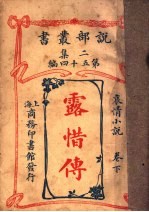 說部叢書
二集
第五十四編
哀情小說
卷下
露惜傳
上海
商務印書館發行